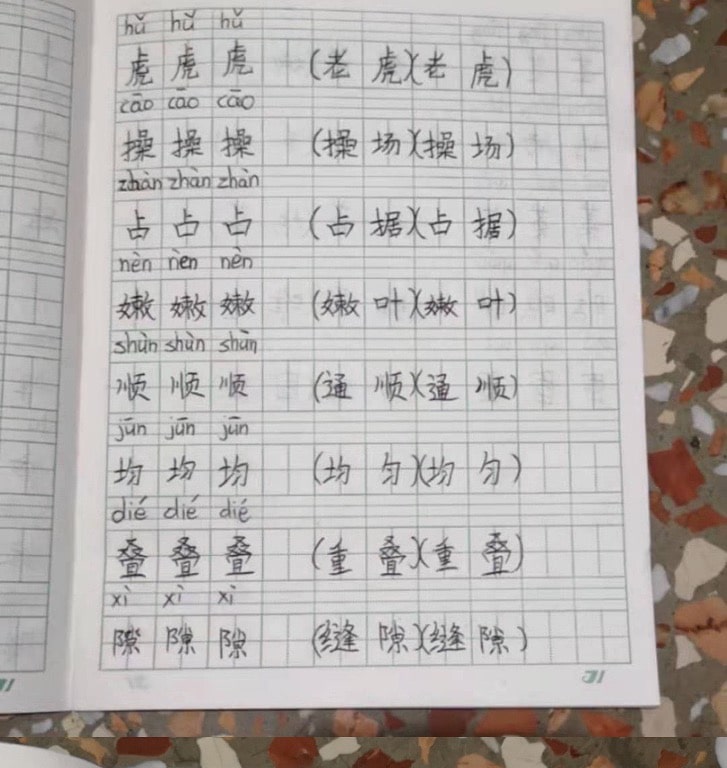 hǔ hǔ hǔ
虎 虎 虎 (老 虎)(老 虎)
cāo cāo cāo
操 操 操 (操 场)(操 场)
zhàn zhàn zhàn
占 占 占 (占 据)(占 据)
nèn nèn nèn
嫩 嫩 嫩 (嫩 叶)(嫩 叶)
shùn shùn shùn
顺 顺 顺 (通 顺)(通 顺)
jūn jūn jūn
均 均 均 (均 匀)(均 匀)
dié dié dié
叠 叠 叠 (重 叠)(重 叠)
xì xì xì
隙 隙 隙 (缝 隙)(缝 隙)